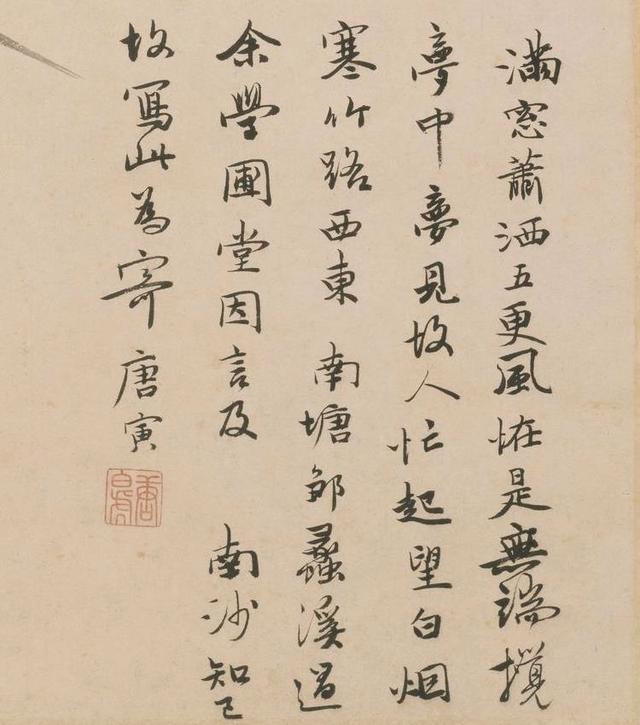 滿窓蕭洒五更風恠是無端攪
夢中夢見故人忙起望白烟
寒竹路西東 南塘鄒蠡溪過
余學圃堂因言及 南沙知己
故寫此為寄 唐寅
唐白虎